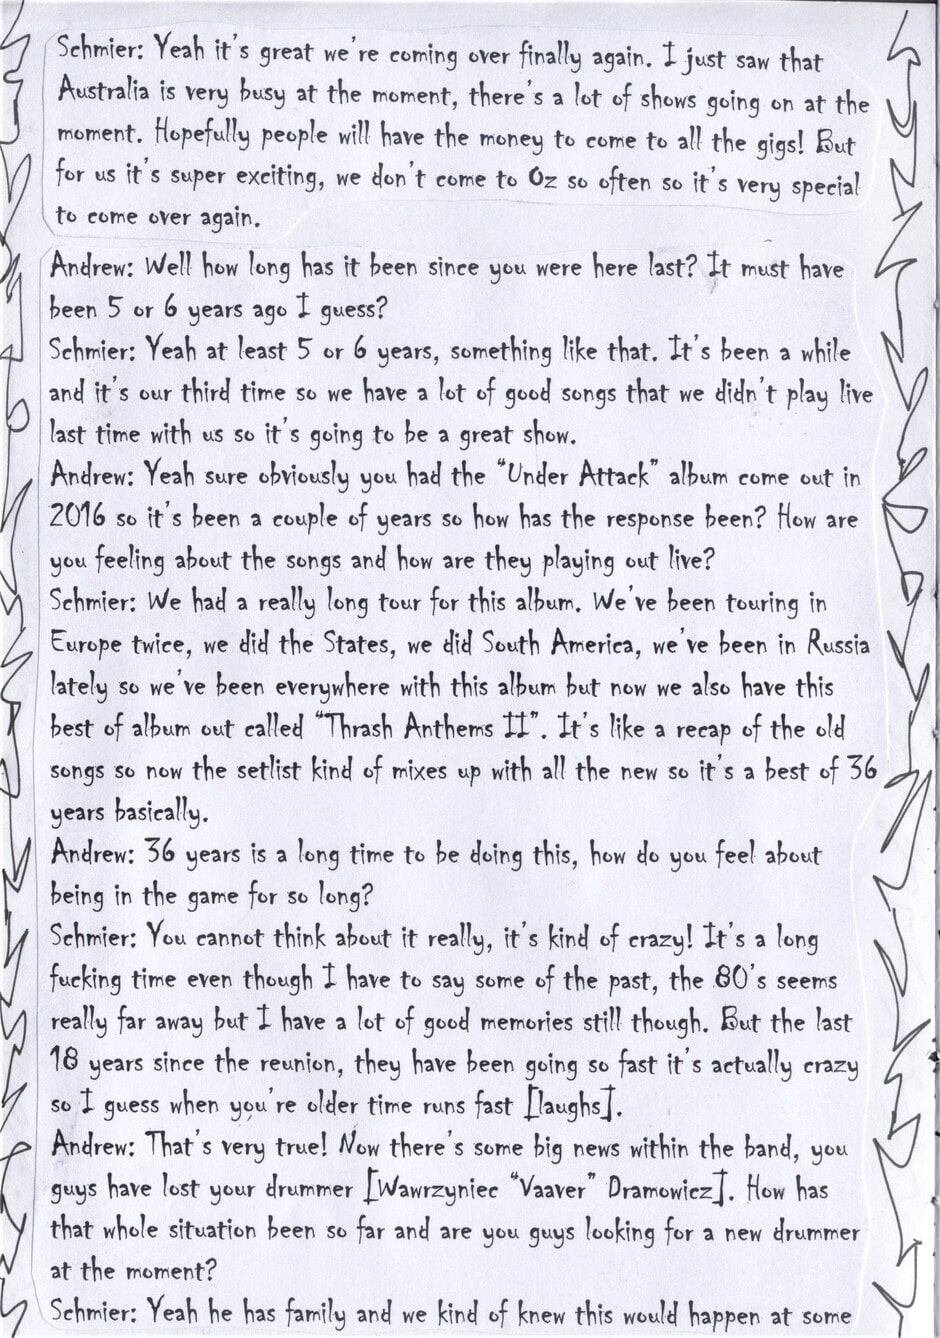 Schmier: Yeah it's great we're coming over finally again. I just saw that
Australia is very busy at the moment, there's a lot of shows going on at the
moment. Hopefully people will have the money to come to all the gigs! But
for us it's super exciting, we don't come to Oz so often so it's very special
to come over again.
Andrew: Well how long has it been since you were here last? It must have
been 5 or 6 years ago I guess?
Schmier: Yeah at least 5 or 6 years, something like that. It's been a while
and it's our third time so we have a lot of good songs that we didn't play live
last time with us so it's going to be a great show.
Andrew: Yeah sure obviously you had the "Under Attack" album come out in
2016 so it's been a couple of years so how has the response been? How are
you feeling about the songs and how are they playing out live?
Schmier: We had a really long tour for this album. We've been touring in
Europe twice, we did the States, we did South America, we've been in Russia
lately so we've been everywhere with this album but now we also have this
best of album out called "Thrash Anthems II". It's like a recap of the old
songs so now the setlist kind of mixes up with all the new so it's a best of 36
years basically.
Andrew: 36 years is a long time to be doing this, how do you feel about
being in the game for so long?
Schmier: You cannot think about it really, it's kind of crazy! It's a long
fucking time even though I have to say some of the past, the 80's seems
really far away but I have a lot of good memories still though. But the last
18 years since the reunion, they have been going so fast it's actually crazy
so I guess when you're older time runs fast [laughs].
Andrew: That's very true! Now there's some big news within the band, you
guys have lost your drummer [Wawrzyniec "Vaaver" Dramowicz]. How has
that whole situation been so far and are you guys looking for a new drummer
at the moment?
Schmier: Yeah he has family and we kind of knew this would happen at some